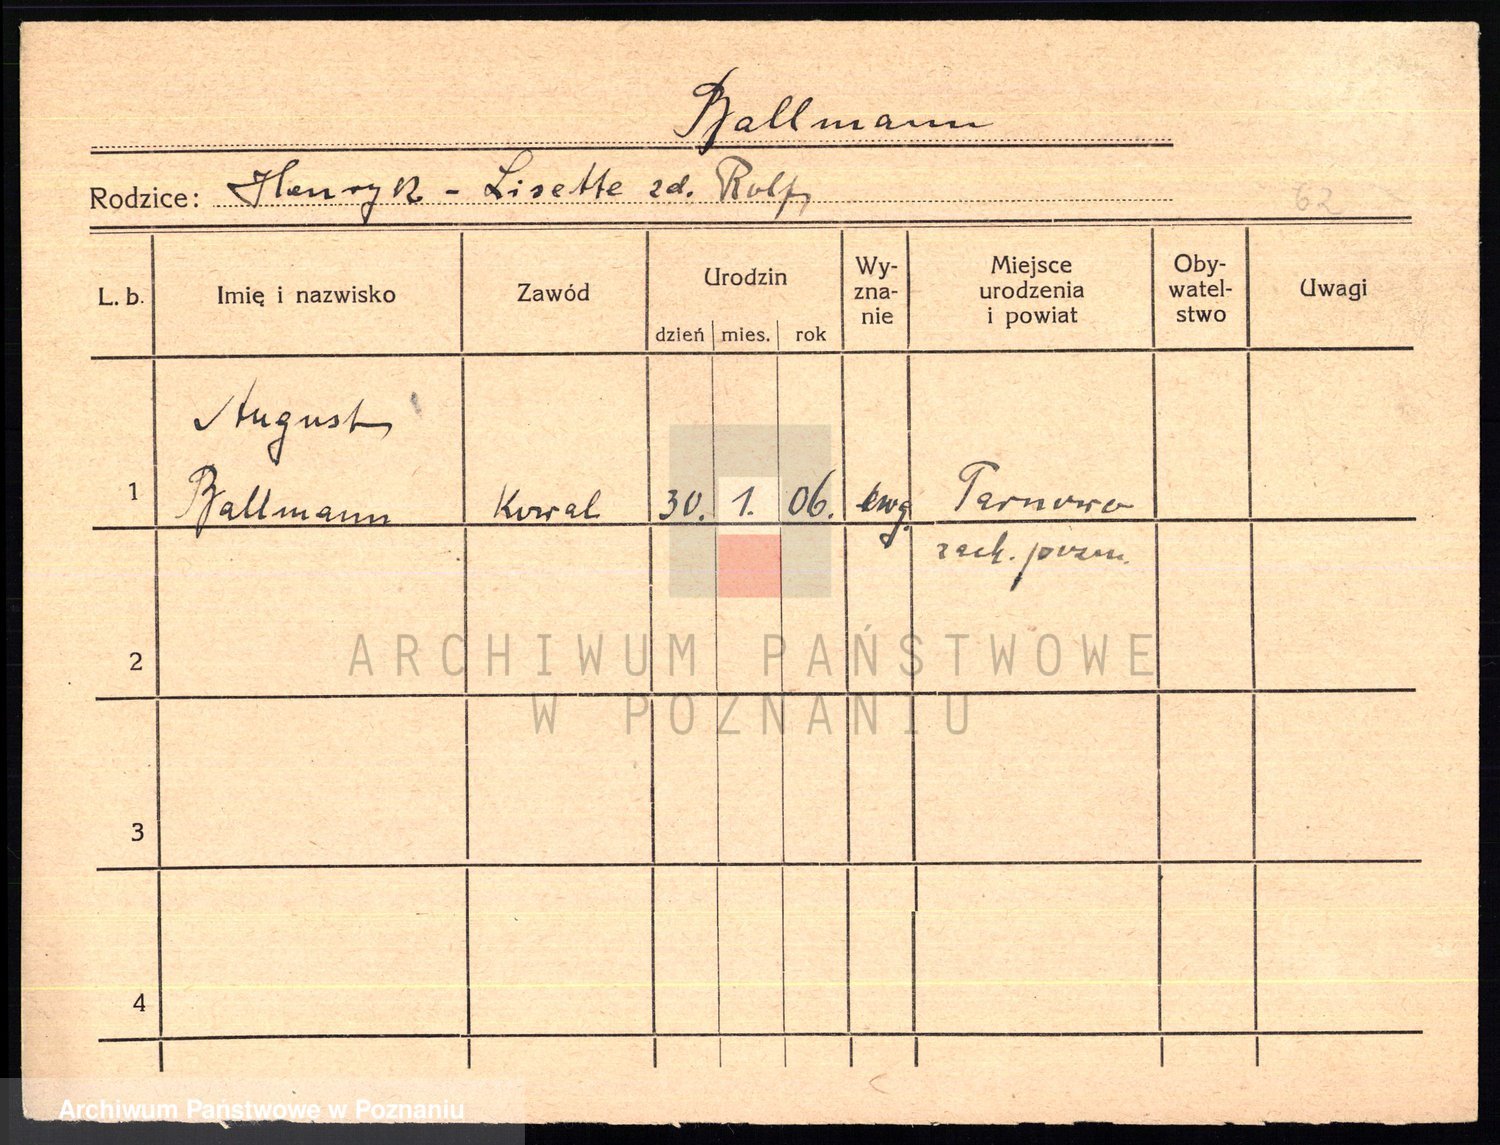 Ballmann
Rodzice: Henryk - Lisette zd. Rolf
62
L. b. Imię i nazwisko Zawód Urodzin dzień mies. rok Wy-zna-nie Miejsce urodzenia i powiat Oby-watel-stwo Uwagi
August
1 Ballmann Kowal 30. 1. 06. ewg. Tarnowo
zach. pozn.
2
ARCHIWUM PAŃSTWOWE
W POZNANIU
3
4
Archiwum Państwowe w Poznaniu